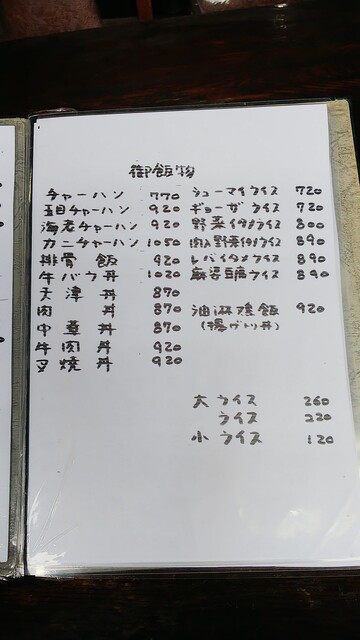 御飯物
チャーハン 770
五目チャーハン 920
海老チャーハン 920
カニチャーハン 1050
排骨飯 920
牛バラ丼 1020
天津丼 870
肉丼 870
中華丼 870
牛肉丼 920
叉焼丼 920
シューマイライス 720
ギョーザライス 720
野菜イタメライス 800
肉入野菜イタメライス 890
レバイタメライス 890
麻婆豆腐ライス 890
油淋鶏飯 920
(揚ゲトリ丼)
大ライス 260
ライス 220
小ライス 120